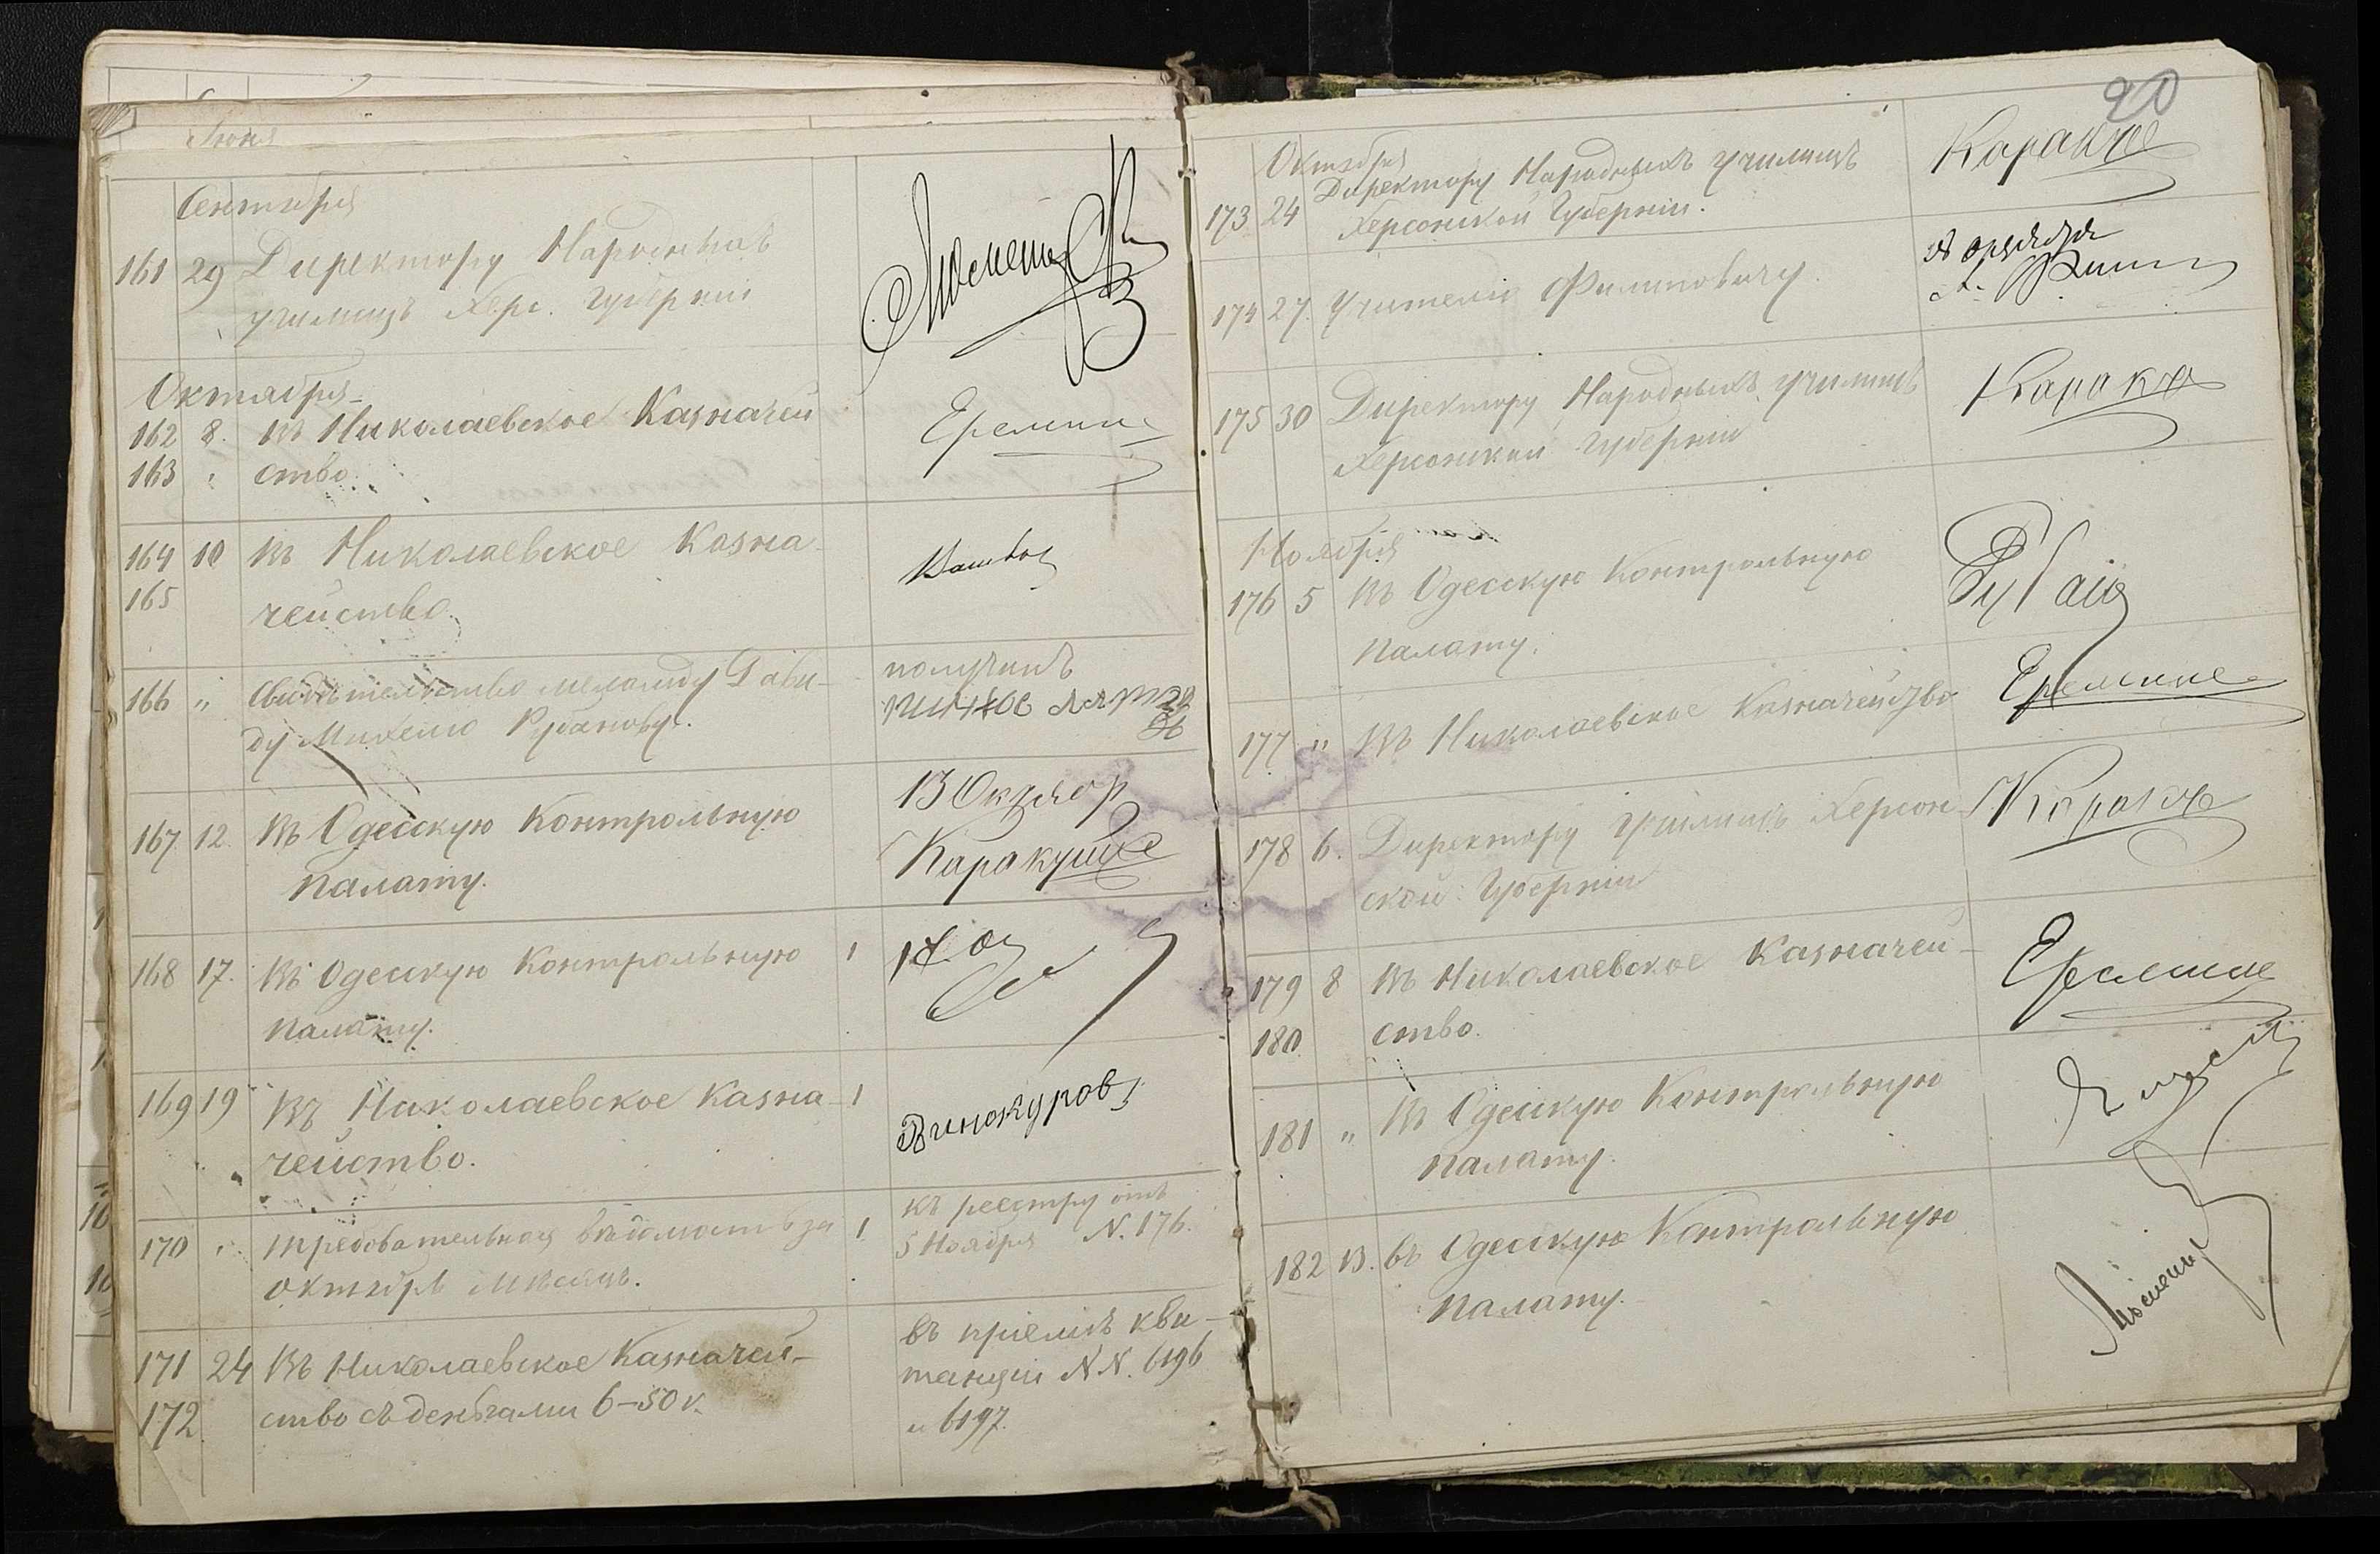 Іюня
Сентября
161 29 Директору Народныхъ
училищъ Херс. Губерніи
Октября
162 8. Въ Николаевское Казначей
163 " ство.
Еремине
164 10 Въ Николаевское Казна-
165 чейство.
166 " Свидѣтельство меламду Дави-
ду Михелю Рубанову.
получилъ
167 12. Въ Одесскую Контрольную
палату.
13 Октябр
Каракуще
168 17. Въ Одесскую Контрольную 1
палату.
17
169 19 Въ Николаевское Казна- 1
чейство.
Винокуровъ
170 " требовательная вѣдомость за 1
октябрь мѣсяцъ.
къ реестру отъ
5 Ноября N. 176.
171 24 Въ Николаевское Казначей-
172. ство съ деньгами 6-50 к.
въ пріемѣ кви-
танціи NN. 6196
и 6197.
20
Октября
173 24 Директору Народныхъ училищъ
Херсонской Губерніи.
174 27. Учителю Филиповичу.
28 октября
175 30 Директору Народныхъ училищъ
Херсонской Губерніи
Ноября
176 5 Въ Одесскую Контрольную
палату.
177 " Въ Николаевское Казначейство
Еремине
178 6. Директору училищъ Херсон-
ской Губерніи
179 8 Въ Николаевское Казначей-
180. ство.
Еремине
181 " Въ Одесскую Контрольную
палату.
182 13. въ Одесскую Контрольную
палату.